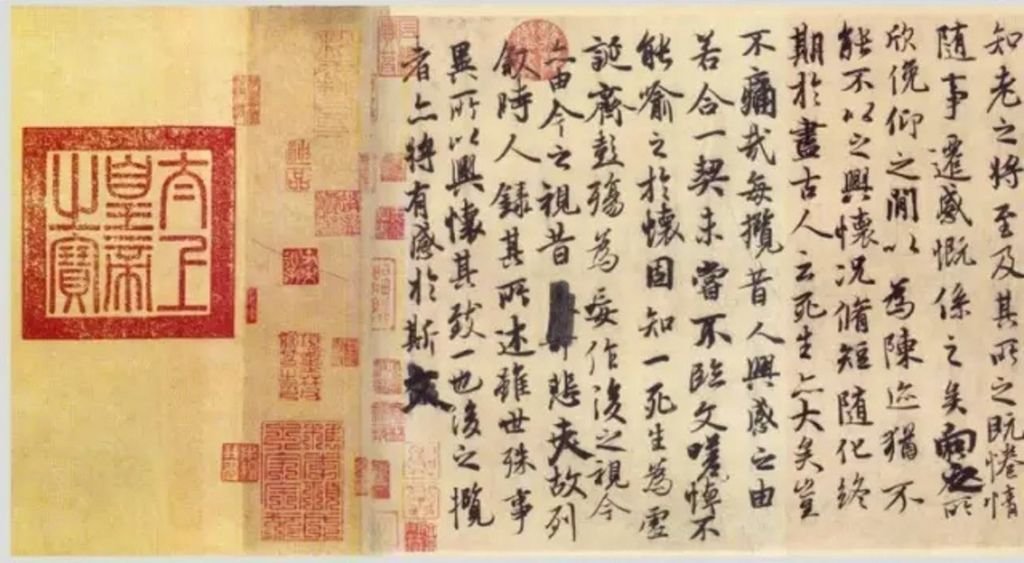 知老之將至及其所之既惓情
隨事遷感慨係之矣向之所
欣俛仰之閒以為陳迹猶不
能不以之興懷況脩短隨化終
期於盡古人云死生亦大矣豈
不痛哉每攬昔人興感之由
若合一契未嘗不臨文嗟悼不
能喻之於懷固知一死生為虛
誕齊彭殤為妄作後之視今
亦由今之視昔悲夫故列
敘時人錄其所述雖世殊事
異所以興懷其致一也後之攬
者亦將有感於斯文
太上
皇帝
之寶